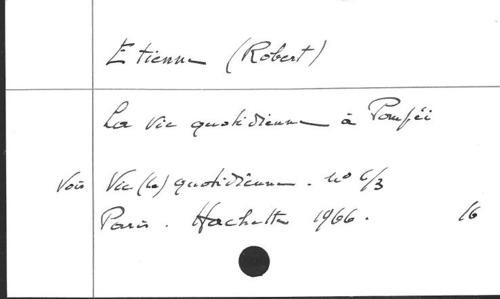 Etienne (Robert)
La vie quotidienne à Pompéi
Voir Vie (la) quotidienne. n° C/3
Paris. Hachette 1966. 16